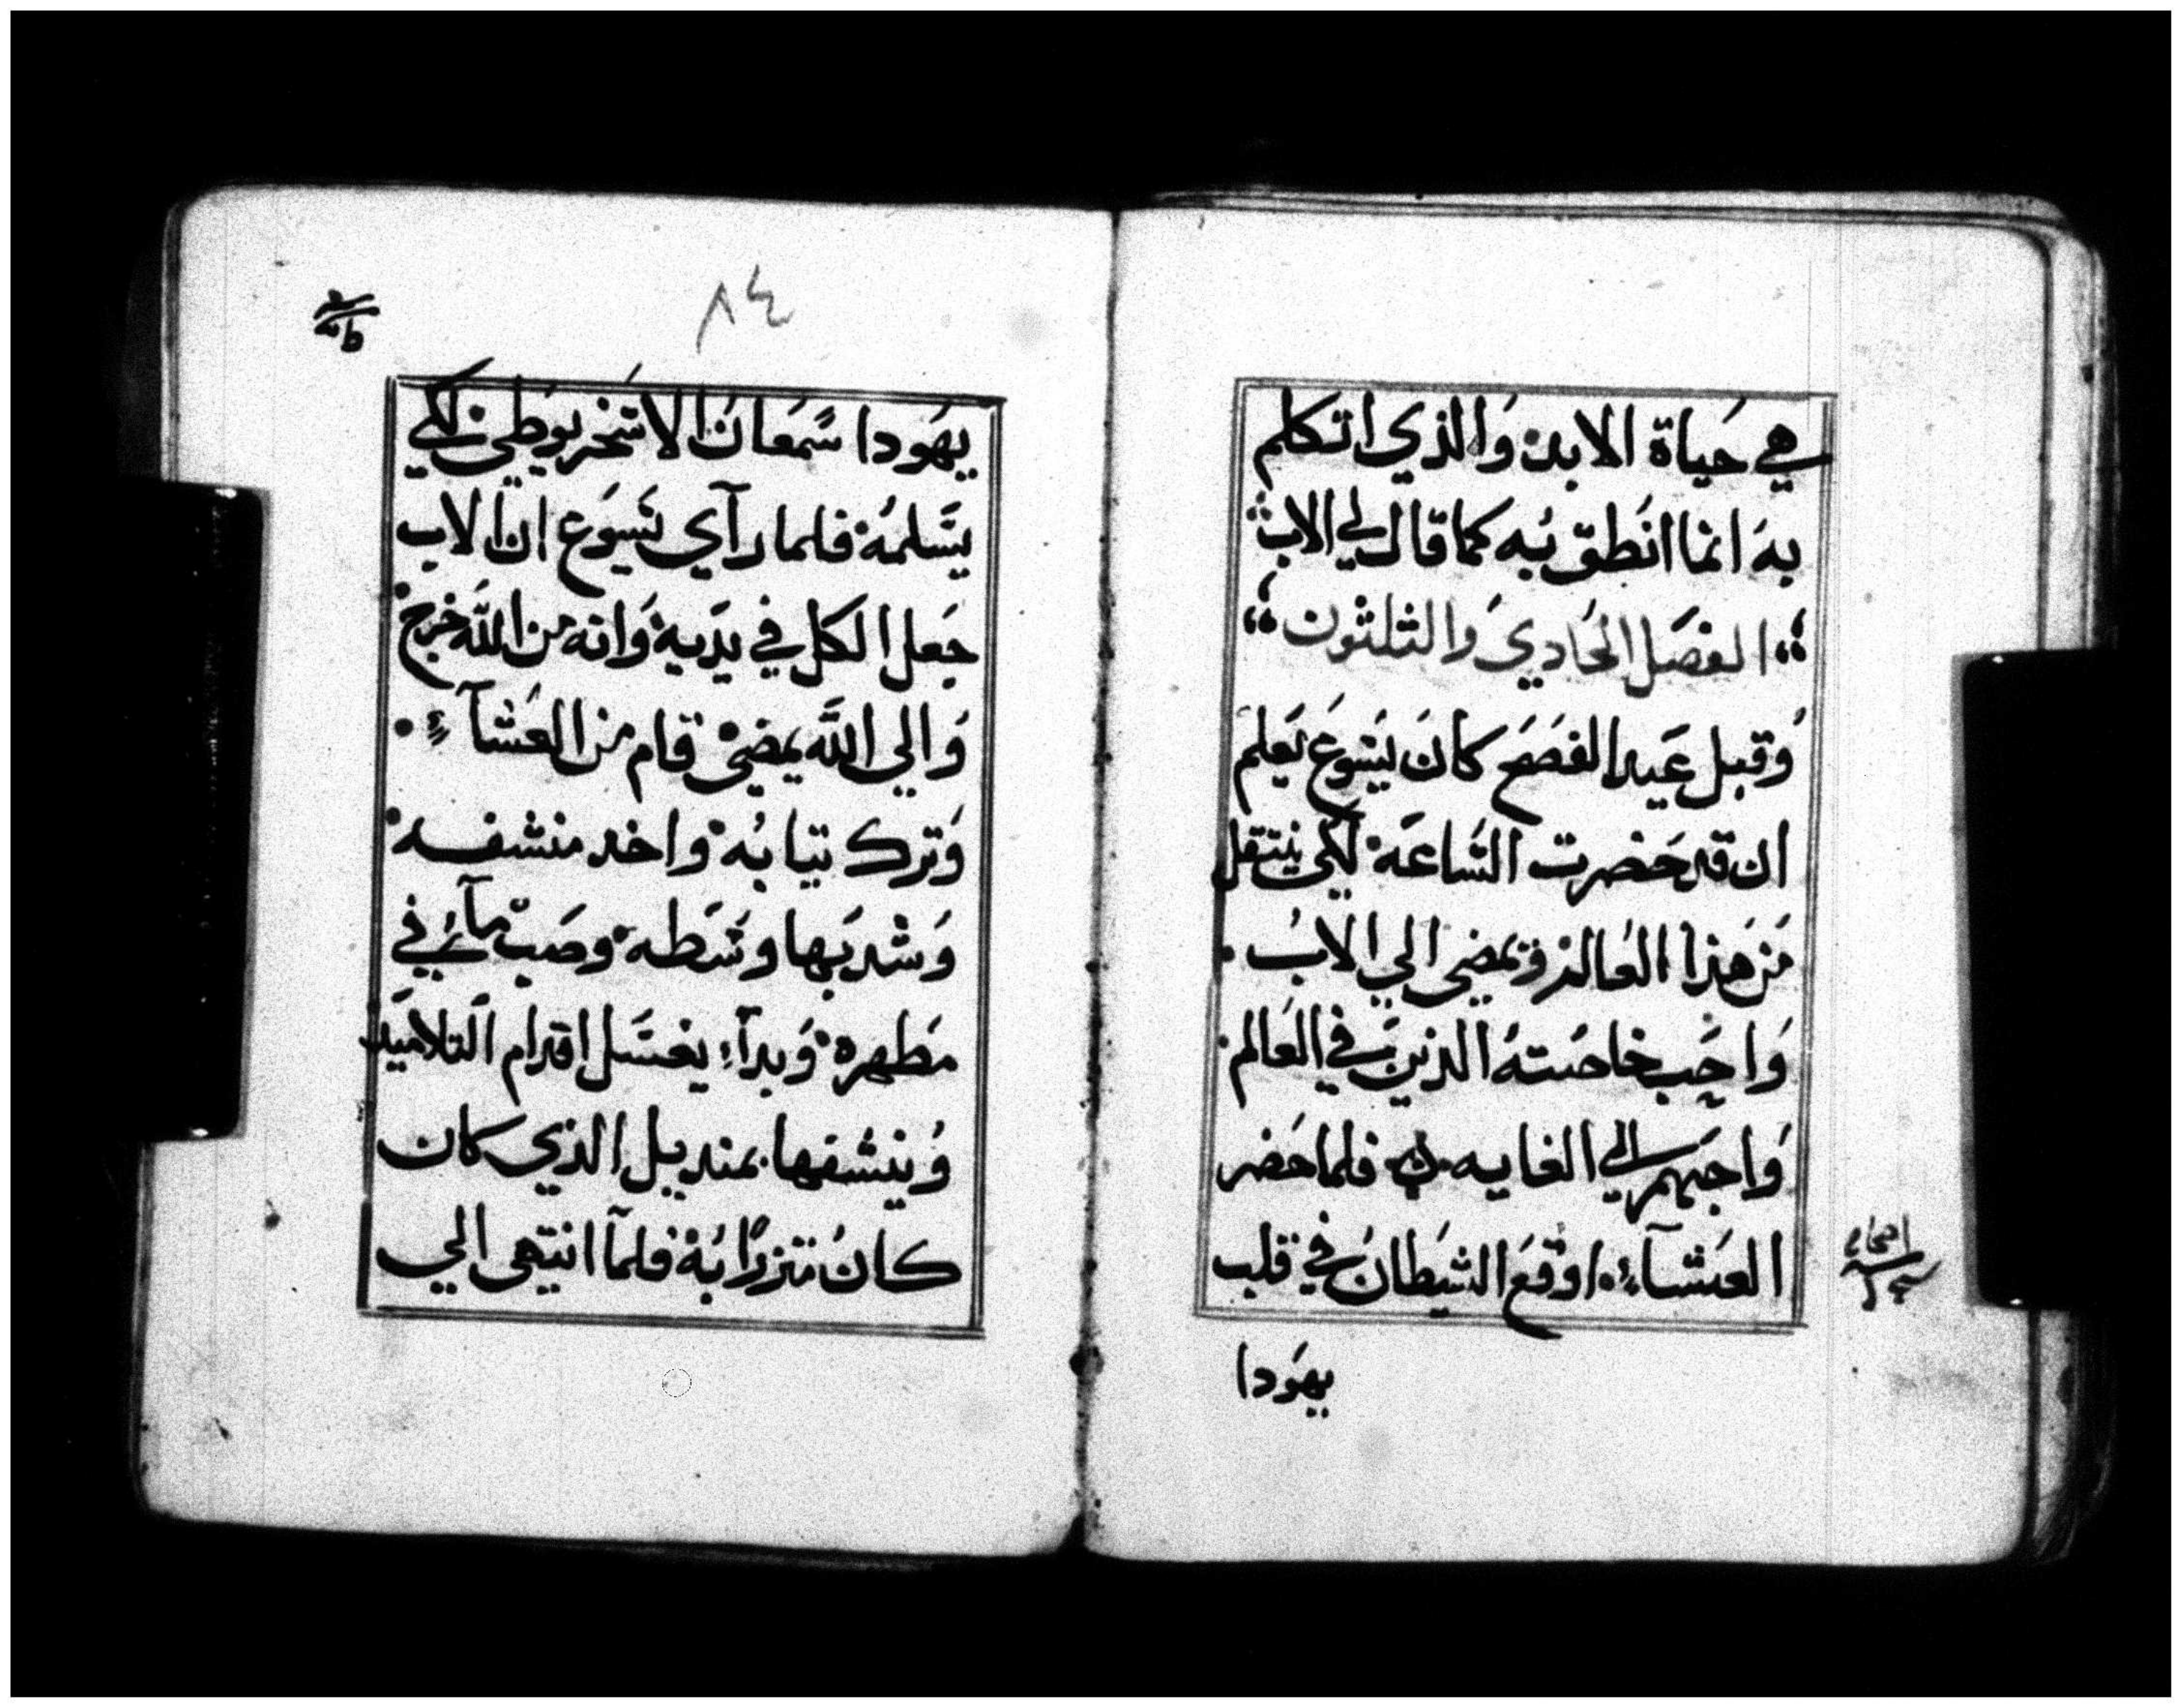 هي حَياة الابد۰ وَالذي اتكلم
بهَ انما انُطق بُه كما قال لي الاب
الفصَل الحَادي وَالثلثون
وُقبل عَيد الفصَحَ كانَ يَسَوعَ يَعلمَ
ان قد حَضرت السَّاعَة۰ لكي ينتقل
مَن هَذا العُالم۰ وَيمضي الي الابُ ۰
وَاحَب خاصَتهُ الذينَ في العَالم۰
وَاحبهم الي الغايه ۰ فلما حَضر
العَشآء۰ اوقَعَ الشيَطانُ في قلب
يهَودا
اصحاح
١٣
٨٤
يهَودا سَمَعَانَ الاسَخريوطي۰ لكي
يسَّلمهُ۰ فلما رآي يَسَوَع انَّ الاب
جَعل الكل في يدَيه۰ وَانه مَن اللَّه خرج۰
وَالي اللَّه يمضي۰ قام من العَشآء ۰
وَترك تيابُه۰ واخد منشفه۰
وَشد بَها وسَطه۰ وصَبّ مآءً في
مَطهرة۰ وَبدآء يغسَل اقدام التلاميَد
وُينشفها بمنديل الذي كان
كانُ متزرًا بُه۰ فلمآ انتهى الي